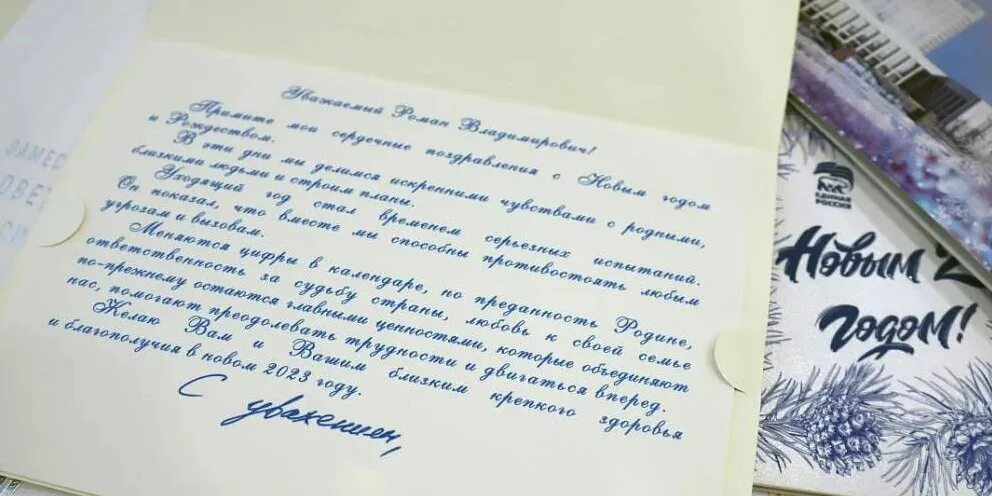 Уважаемый Роман Владимирович!
Примите мои сердечные поздравления с Новым годом
и Рождеством.
В эти дни мы делимся искренними чувствами с родными,
близкими людьми и строим планы.
Уходящий год стал временем серьезных испытаний.
Он показал, что вместе мы способны противостоять любым
угрозам и вызовам.
Меняются цифры в календаре, но преданность Родине,
ответственность за судьбу страны, любовь к своей семье
по-прежнему остаются главными ценностями, которые объединяют
нас, помогают преодолевать трудности и двигаться вперед.
Желаю Вам и Вашим близким крепкого здоровья
и благополучия в новом 2023 году.
С уважением,
ЕДИНАЯ
РОССИЯ
Новым 2
годом!